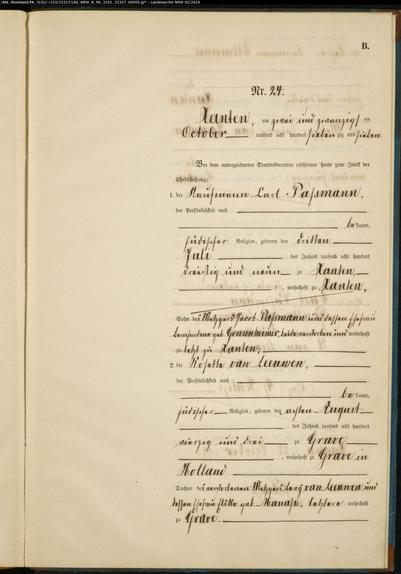 B.
Nr. 24.
Xanten, am zwei und zwanzigsten
October tausend acht hundert siebenzig und sieben
Vor dem unterzeichneten Standesbeamten erschienen heute zum Zweck der
Eheschließung:
1. der Kaufmann Carl Paßmann,
der Persönlichkeit nach
bekannt,
jüdischer Religion, geboren den dritten
Juli des Jahres tausend acht hundert
dreißig und neun zu Xanten,
, wohnhaft zu Xanten,
Sohn des Metzgers Jacob Paßmann und dessen Ehefrau
geb. beide verstorben und wohnhaft
zuletzt zu Xanten;
2. die Rosette van Leeuwen,
der Persönlichkeit nach
bekannt,
jüdischer Religion, geboren den achten August
des Jahres tausend acht hundert
vierzig und drei zu Grave
, wohnhaft zu Grave in
Holland
Tochter des verstorbenen Metzgers Levy van Leeuwen und
dessen Ehefrau geb. letztere wohnhaft
zu Grave.